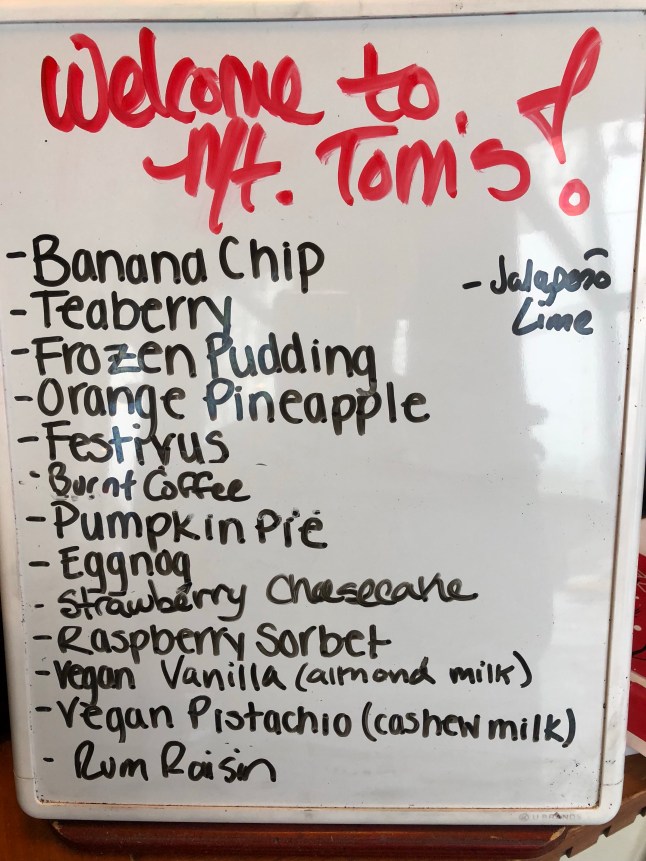 Welcome to
Mt. Tom's!
- Banana Chip
- Teaberry
- Frozen Pudding
- Orange Pineapple
- Festivus
- Burnt Coffee
- Pumpkin Pie
- Eggnog
- Strawberry Cheesecake
- Raspberry Sorbet
- Vegan Vanilla (almond milk)
- Vegan Pistachio (cashew milk)
- Rum Raisin
- Jalapeño
Lime